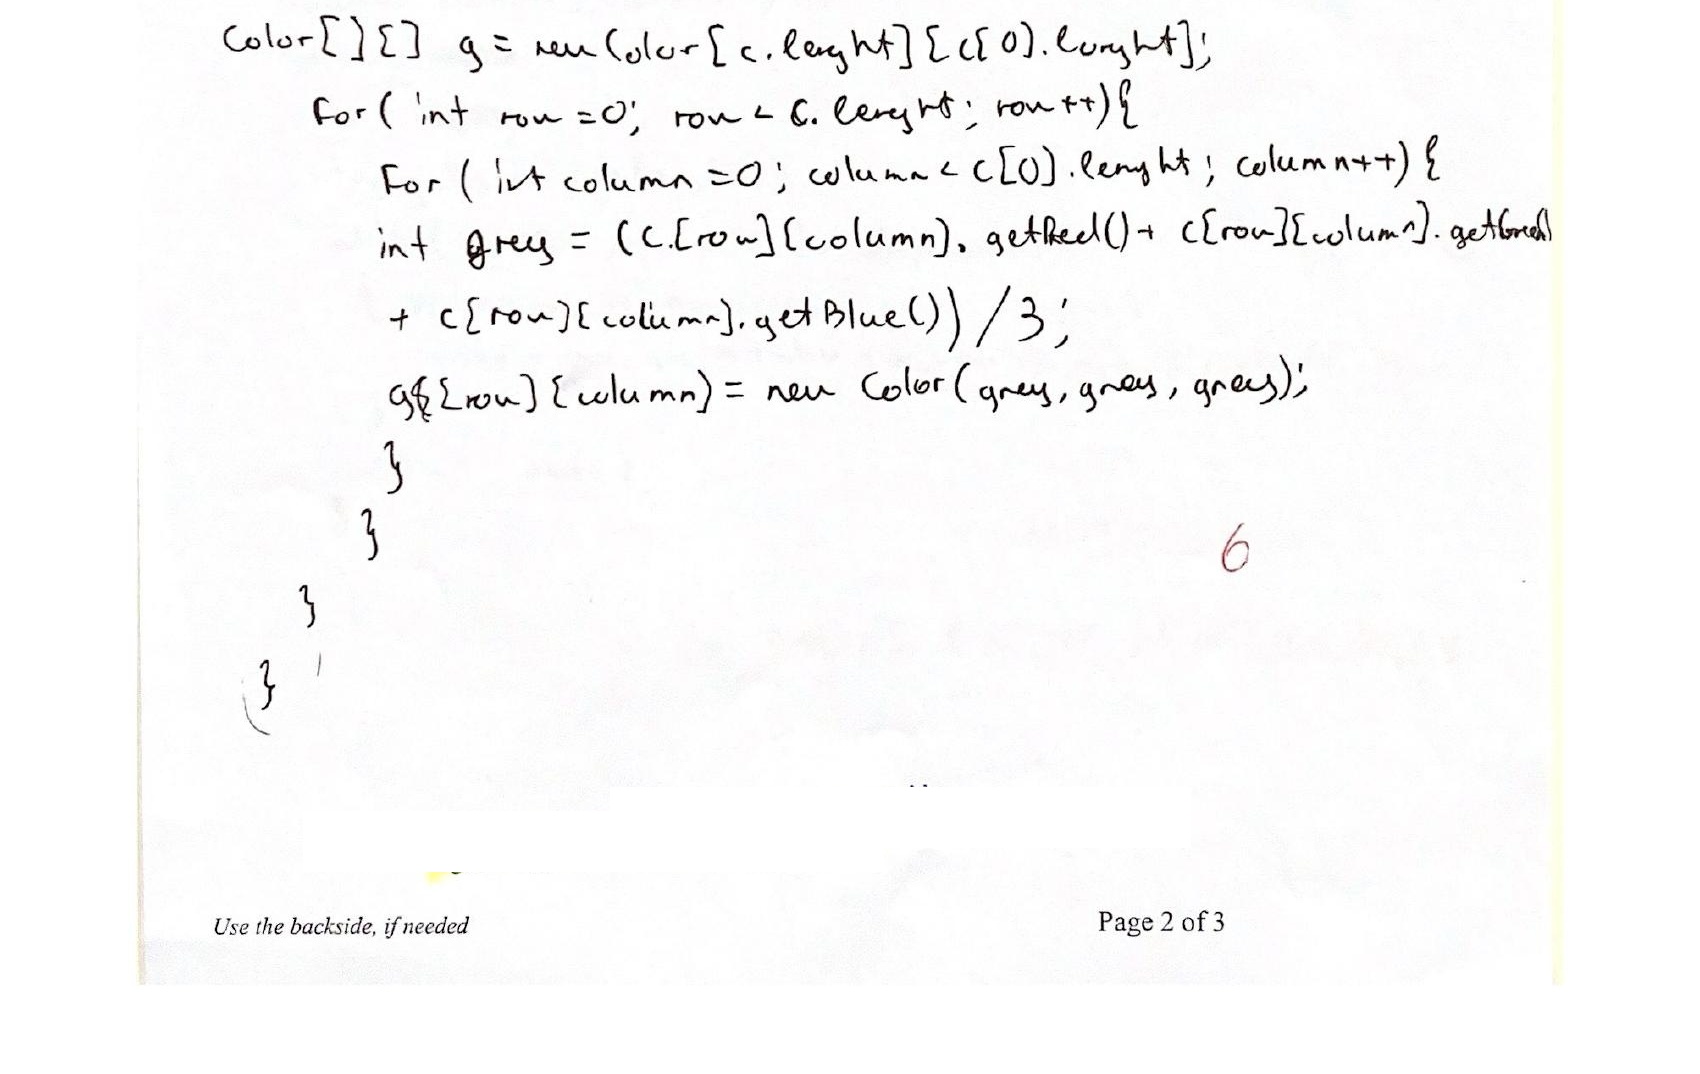 Color[][] g = new Color[c.lenght][c[0].lenght];
For( int row =0; row < c.lenght; row++){
For ( int column =0; column < c[0].lenght; column++) {
int grey = (c.[row][column]. getRed()+ c[row][column]. getGreen()
+ c[row][column]. getBlue()) /3;
g[row][column] = new Color(grey, grey, grey);
}
}
6
}
}
Use the backside, if needed
Page 2 of 3